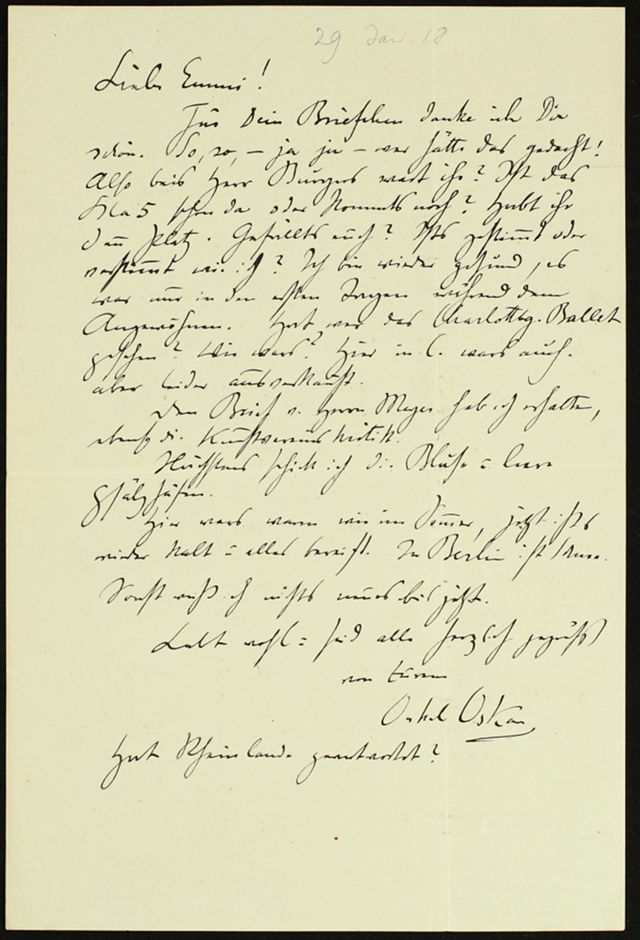 29 Jan. 18
Liebe Emmi!
Für Dein Briefchen danke ich Dir
schön. So, so, – ja ja – wer hätte das gedacht!
Also beis Herr Burgers wart ihr? Ist das
schon da oder kommts noch? Habt ihr
denn Platz. Gefällts euch? Ists gestimmt oder
verstimmt wie ich? Ich bin wieder gesund, es
war nur in den ersten Tagen während dem
Angewöhnen. Hat wer das Charlottbg. Ballet
gesehen? Wie wars? Hier in C. wars auch.
aber leider ausverkauft.
Den Brief v. Herrn Meyer hab ich erhalten,
ebenso die Kunstvereinskritik.
Nächstens schick ich die Bluse u leere
Gsälzhäfen.
Hier wars warm wie im Sommer, jetzt ists
wieder kalt u alles bereift. In Berlin ist
Sonst weiß ich nichts neues bis jetzt.
Lebt wohl u seid alle herzlich gegrüßt
von Eurem
Onkel Oskar
Hat Rheinlande geantwortet?